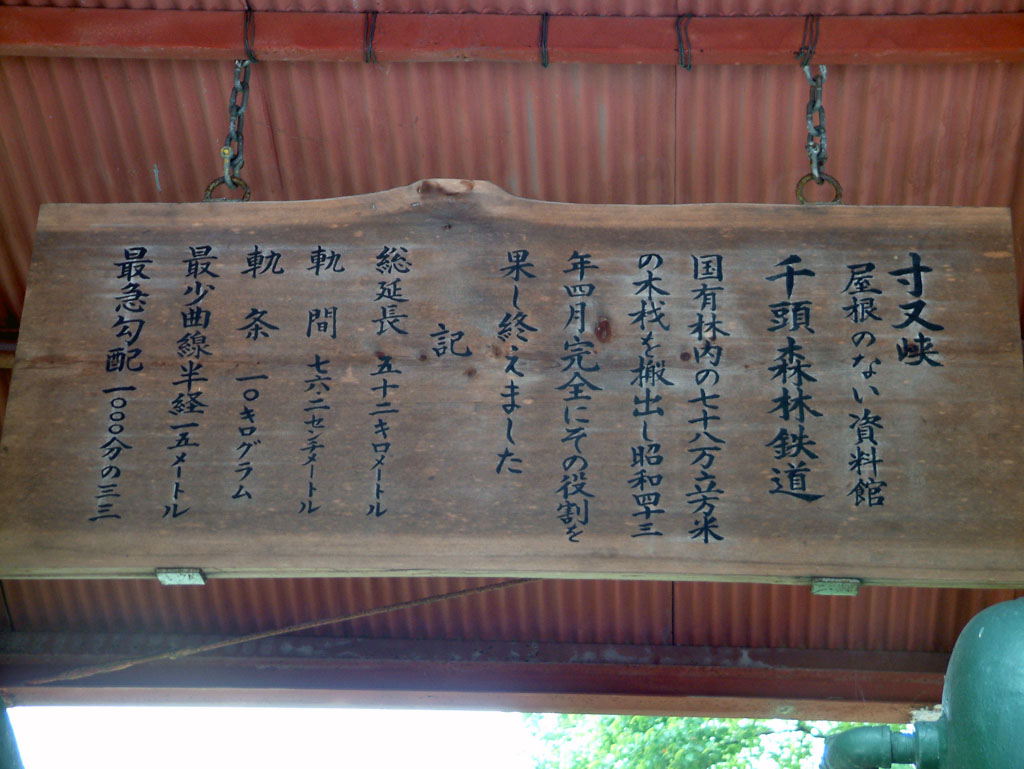 寸又峡
屋根のない資料館
千頭森林鉄道
国有林内の七十八万立方米
の木材を搬出し昭和四十三
年四月完全にその役割を
果し終えました
記
総延長 五十二キロメートル
軌間 七六二センチメートル
軌条 一〇キログラム
最少曲線半経一五メートル
最急勾配 一〇〇〇分の三三